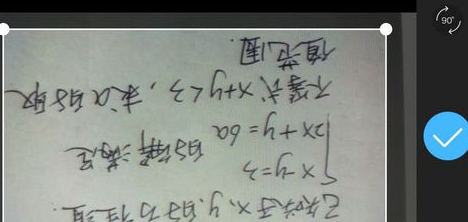 已知关于x,y的方程组
x-y=3
2x+y=6a 的解满足
不等式 x+y<3, 求a的取
值范围.
90°